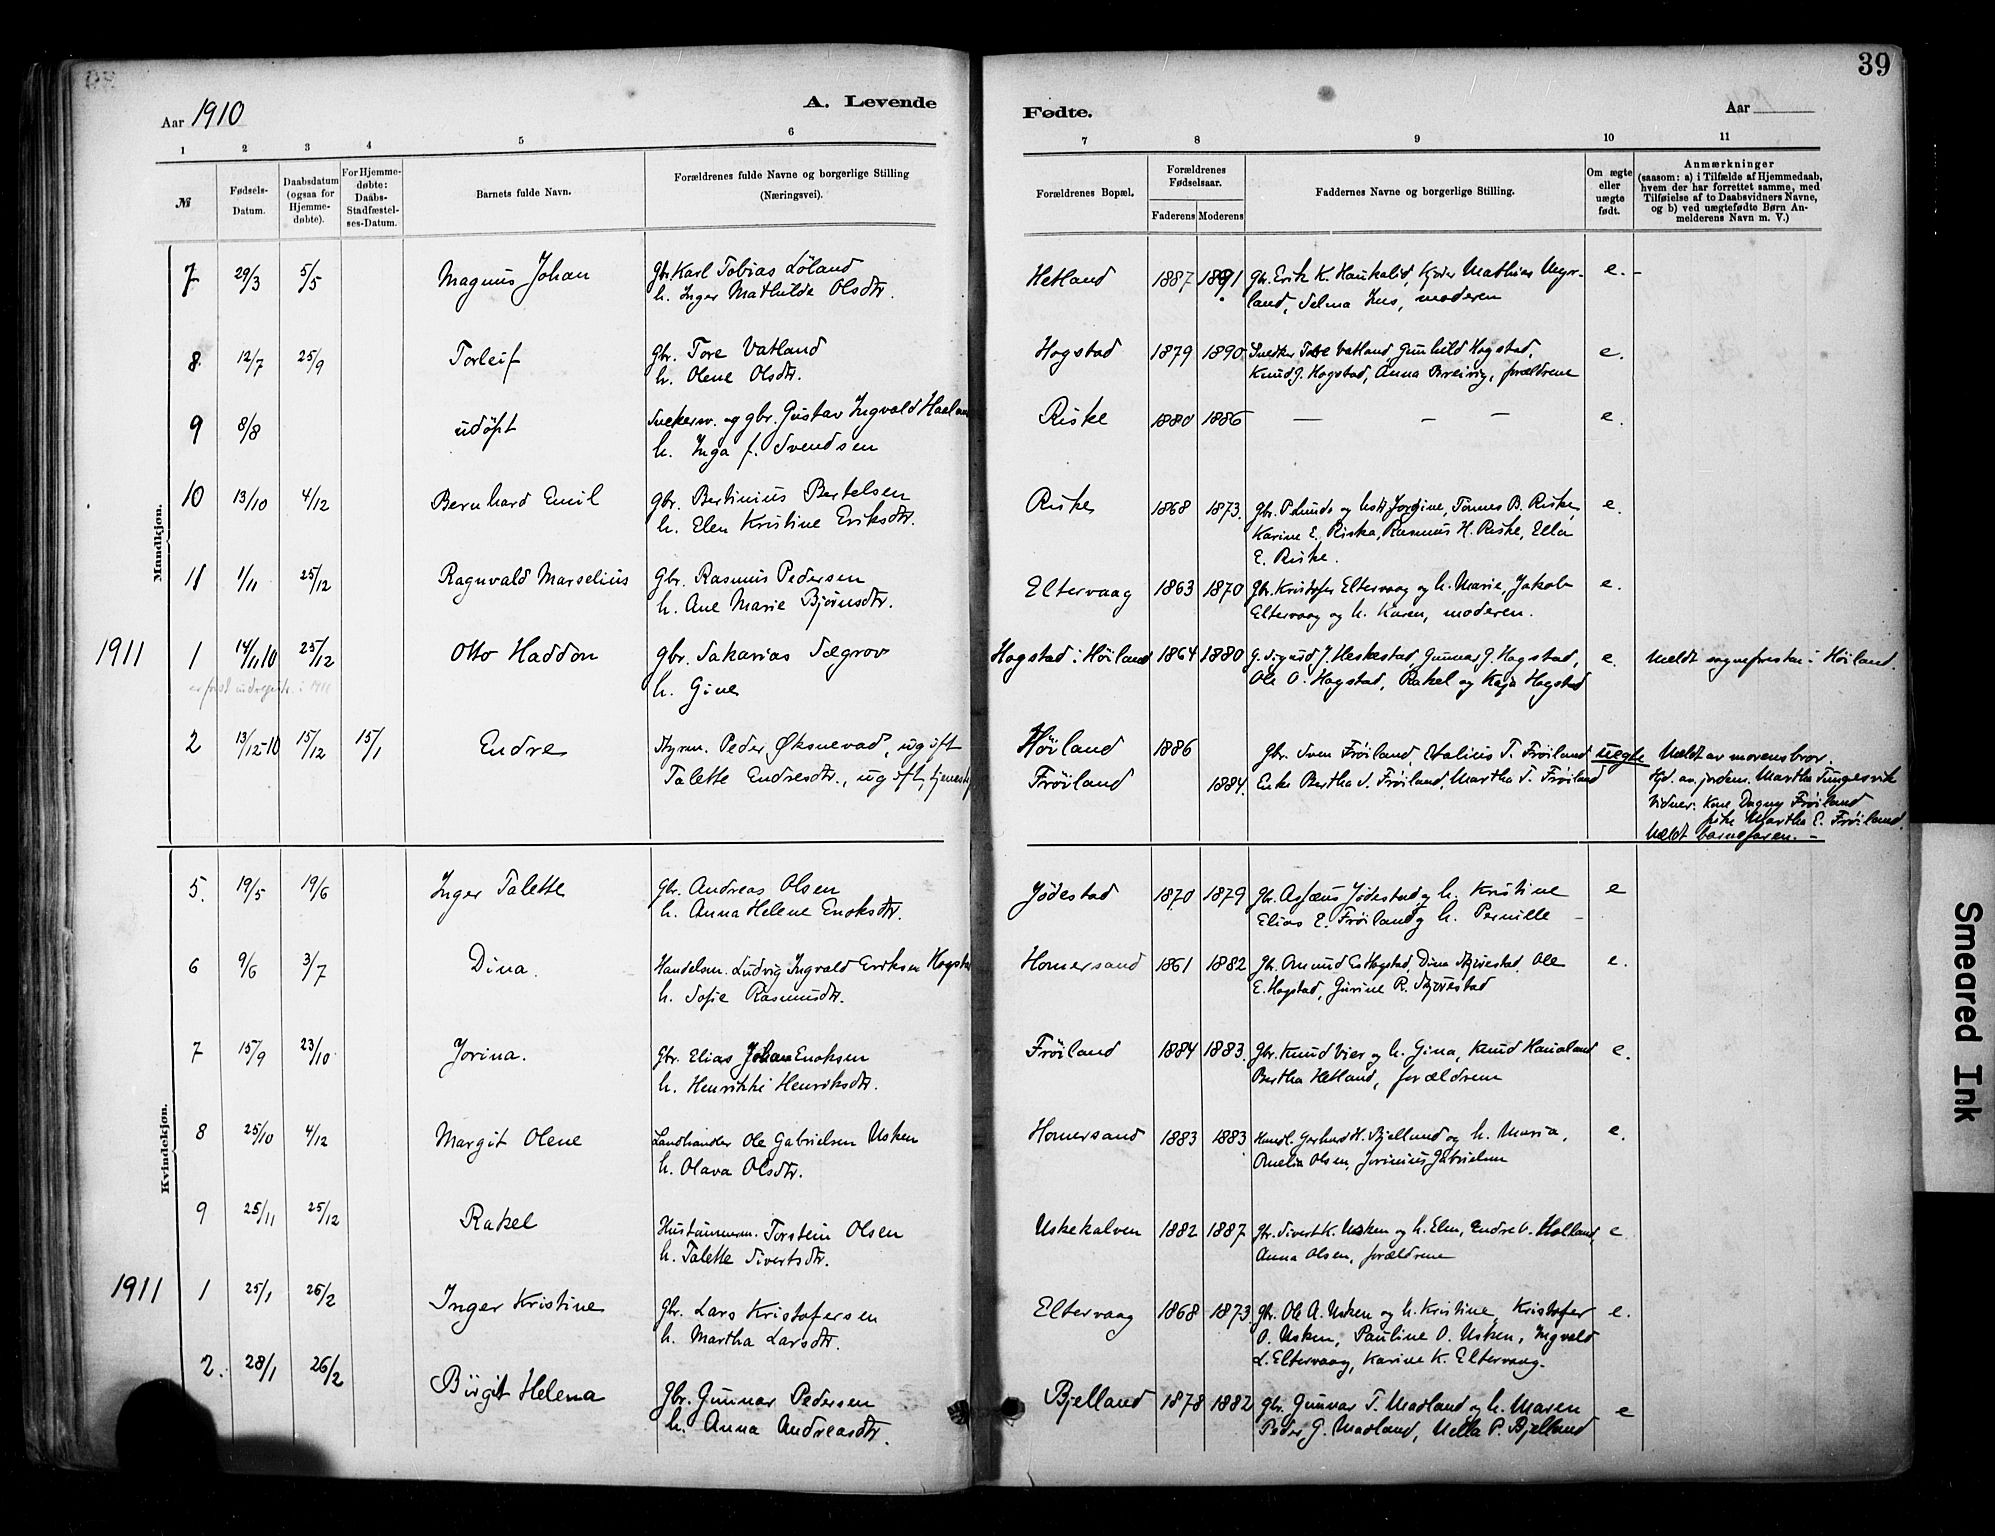 39
Aar 1910
A. Levende
Fødte.
Aar
1 2 3 4 5 6 7 8 9 10 11
№
Fødsels-
Datum.
Daabsdatum
(ogsaa for
Hjemme-
døbte).
For Hjemme-
døbte:
Daabs-
Stadfæstel-
ses-Datum.
Barnets fulde Navn.
Forældrenes fulde Navne og borgerlige Stilling
(Næringsvei).
Forældrenes Bopæl.
Forældrenes
Fødselsaar.
Faderens
Moderens
Faddernes Navne og borgerlige Stilling.
Om ægte
eller
uægte
født.
Anmærkninger
(saasom: a) i Tilfælde af Hjemmedaab,
hvem der har forrettet samme, med
Tilføielse af to Daabsvidners Navne,
og b) ved uægtefødte Børn An-
melderens Navn m. V.)
Mandkjøn.
7 29/3 5/5 Magnus Johan gbr. Karl Tobias Løland Hetland 1887 1891 gbr. Erik K. Haukalid, Mathias e. -
h. Inger Mathilde Olsdtr. land, Selma moderen
8 12/7 25/9 Torleif gbr. Tore Vatland Hogstad 1879 1890 Snedker Tore Vatland, Gunhild Hogstad, e.
h. Olene Olsdtr. Knud J. Hogstad, Anna Breivig, forældrene
9 8/8 udöpt og gbr. Gustav Ingvald Riske 1880 1886 — — — e.
h. Inga f. Svendsen
10 13/10 4/12 Bernhard Emil gbr. Bertinius Bertelsen Riske 1868 1873. gbr. P. Lunde og hstr Jorgine, Tønnes B. Riske, e.
h. Elen Kristine Eriksdtr. Karine E. Riska, Rasmus H. Riske, Ella
E. Riske.
11 1/11 25/12 Ragnvald Marselius Gbr. Rasmus Pedersen Eltervaag 1863 1870 Gbr. Kristofer Eltervaag og h. Marie, Jakob e.
h. Ane Marie Bjørnsdtr. Eltervaag og h. Karen, moderen.
1911 1 14/11 10 25/12 Otto Haddon gbr. Sakarias Sægrov Hogstad i Höiland 1864 1880 G. Sigurd J. Heskestad, Gunnar J. Hogstad, e. Meldt sognepresten i Höiland.
h. Gine Ole O. Hogstad, Rakel og Kaja Hogstad
2 13/12-10 15/12 15/1 Endre Styrm. Peder Øksnevad, ugift Höiland 1886 Gbr. Sven Fröiland, T. Fröiland uægte Meldt av morens bror.
Talette Endresdtr., ugift, Fröiland 1884. Enke Bertha S. Fröiland, Martha T. Fröiland Hjd. av jordm. Martha Tungesvik
Vidner: Kone Dagny Fröiland
pike Martha E. Fröiland.
Meldt barnefaren. -
Kvindekjøn.
5. 19/5 19/6 Inger Talette gbr. Andreas Olsen Jödestad 1870 1879 gbr. Asfæus Jödestad og h. Kristine e
h. Anna Helene Enoksdtr. Elias E. Fröiland og h. Pernille -
6 9/6 3/7 Dina. Handelsm. Ludvig Ingvald Eriksen Homersand 1861 1882 Gbr. Amund E. Hogstad, Dina Skjörestad, Ole e.
h. Sofie Rasmusdtr. E. Hogstad, Gurine R. Skjörestad
7 15/9 23/10 Jorina. Gbr. Elias Johan Enoksen Fröiland 1884 1883. Gbr. Knud Vier og h. Gina, Knud Hanaland e.
h. Henrikke Henriksdtr. Bertha Hetland, forældrene
8 25/10 4/12 Margit Olene Landhandler Ole Gabrielsen Usken Homersand 1883 1883 Handl. Gerhard H. Bjelland og h. Maria, e.
h. Olava Olsdtr. Amelia Olsen, Jorinius Gabrielsen
9 25/11 25/12 Rakel Hustømmerm. Torstein Olsen Uskekalven 1882 1887 Gbr. Sivert K. Usken og h. Elen, Endre V. Holland, e
h. Talette Sivertsdtr. Anna Olsen, forældrene
1911 1 25/1 26/2 Inger Kristine gbr. Lars Kristofersen Eltervaag 1868 1873. gbr. Ole A. Usken og h. Kristine, Kristofer e.
h. Martha Larsdtr. O. Usken, Pauline O. Usken, Ingvald
L. Eltervaag, Karine K. Eltervaag.
2. 28/1 26/2 Birgit Helena Gbr. Gunnar Pedersen Bjelland 1878 1882 gbr. Gunvar T. Madland og h. Maren e
h. Anna Andreasdtr. Peder G. Madland, Mella P. Bjelland
Smeared Ink